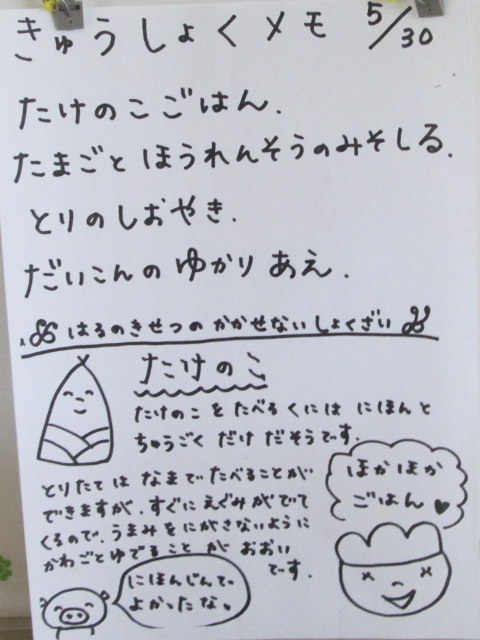 きゅうしょくメモ 5/30
たけのこごはん.
たまごとほうれんそうのみそしる.
とりのしおやき.
だいこんのゆかりあえ.
はるのきせつのかかせないしょくざい
たけのこ
たけのこをたべるくにはにほんと
ちゅうごくだけだそうです.
とりたてはなまでたべることが
できますが、すぐにえぐみがでて
くるので、うまみをにがさないように
かわごとゆでることがおおい
です.
ほかほか
ごはん
にほんじんで、
よかったな。